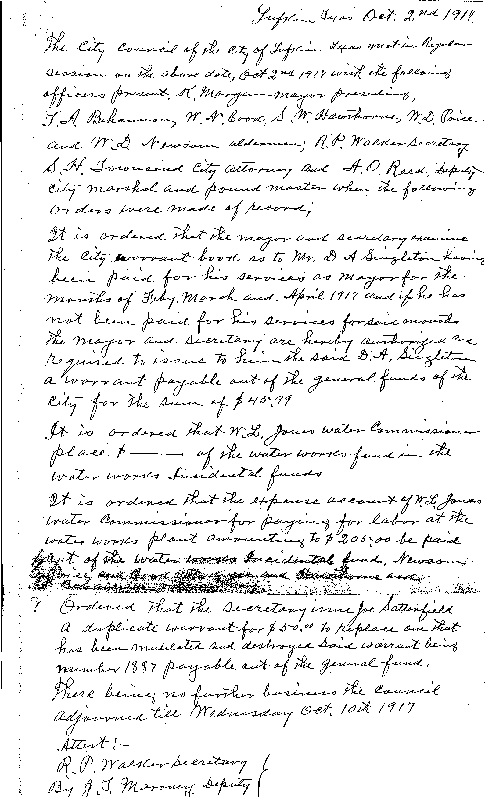 Lufkin Texas Oct. 2nd 1917
The City Council of the City of Lufkin Texas met in Regular
session on the above date, Oct 2nd 1917 with the following
officers present. K. Mayor presiding,
T. A. W. N. Cook, S. W. Hawthorne, W. L. Price
and W. D. Newsom aldermen, R. P. Walden Secretary
S. H. Townsend City Attorney and A. O. Reed, Deputy
City Marshal and pound master when the following
orders were made of record;
It is ordered that the mayor and secretary examine
the City warrant book as to Mr. D A Singleton having
been paid for his services as Mayor for the
months of Feby, March and April 1917 and if he has
not been paid for his services for said months
the Mayor and Secretary are hereby authorized and
required to issue to him the said D. A. Singleton
a warrant payable out of the general funds of the
City for the sum of $45.99
It is ordered that W. L. Jones Water Commissioner
place $ — - — of the water works fund in the
water works Incidental funds
It is ordered that the expense account of W L Jones
water Commissioner for paying for labor at the
water works plant amounting to $205.00 be paid
out of the water works Incidental fund, Newsom
and and Hawthorne and
? Ordered that the Secretary issue Joe Satterfield
A duplicate warrant for $50.00 to replace one that
has been mutilated and destroyed said warrant being
number 1887 payable out of the general fund.
There being no further business the Council
adjourned till Wednesday Oct. 10th 1917
Attest:-
R. P. Walden Secretary
By J. T. Deputy